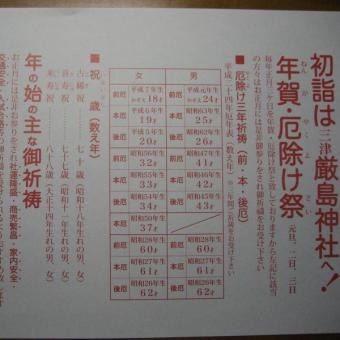 初詣は三津厳島神社へ!
年賀・厄除け祭
元旦、二日、三日
毎年正月三が日を年賀、厄除け祭と致しておりますから左記に該当
の方々はお正月には是非御参りをされ御祈祷をお受け下さい
■厄除け三年祈祷(前・本・後厄)
平成二十四年厄年表(数え年)
女 男
前厄 平成7年生 18才 前厄 平成元年生 24才
本厄 平成6年生 19才 本厄 昭和63年生 25才
後厄 平成5年生 20才 後厄 昭和62年生 26才
前厄 昭和56年生 32才 前厄 昭和47年生 41才
本厄 昭和55年生 33才 本厄 昭和46年生 42才
後厄 昭和54年生 34才 後厄 昭和45年生 43才
本厄 昭和50年生 37才
前厄 昭和28年生 60才 前厄 昭和28年生 60才
本厄 昭和27年生 61才 本厄 昭和27年生 61才
後厄 昭和26年生 62才 後厄 昭和26年生 62才
■祝歳(数え年)
古稀祝 七十歳(昭和十八年生れの男、女)
喜寿祝 七十七歳(昭和十一年生れの男、女)
米寿祝 八十八歳(大正十四年生れの男、女)
年の始の主な御祈祷
お正月には是非お参りをされ社運隆盛・商売繁昌・家内安全・